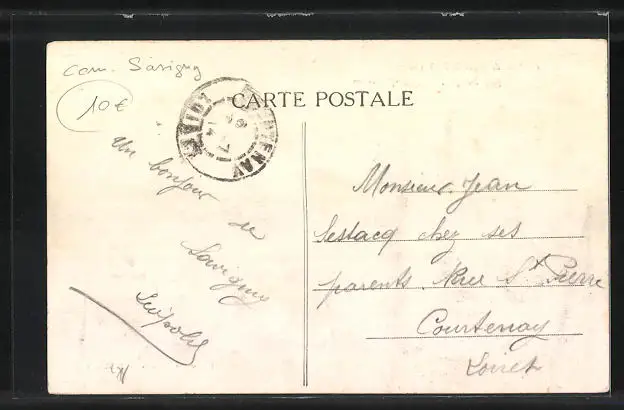 com. Savigny
10€
CARTE POSTALE
COURTENAY
LOIRET
Un bonjour
de
Savigny
Léopold
Monsieur Jean
Sestacq chez ses
parents Rue St Pierre
Courtenay
Loiret